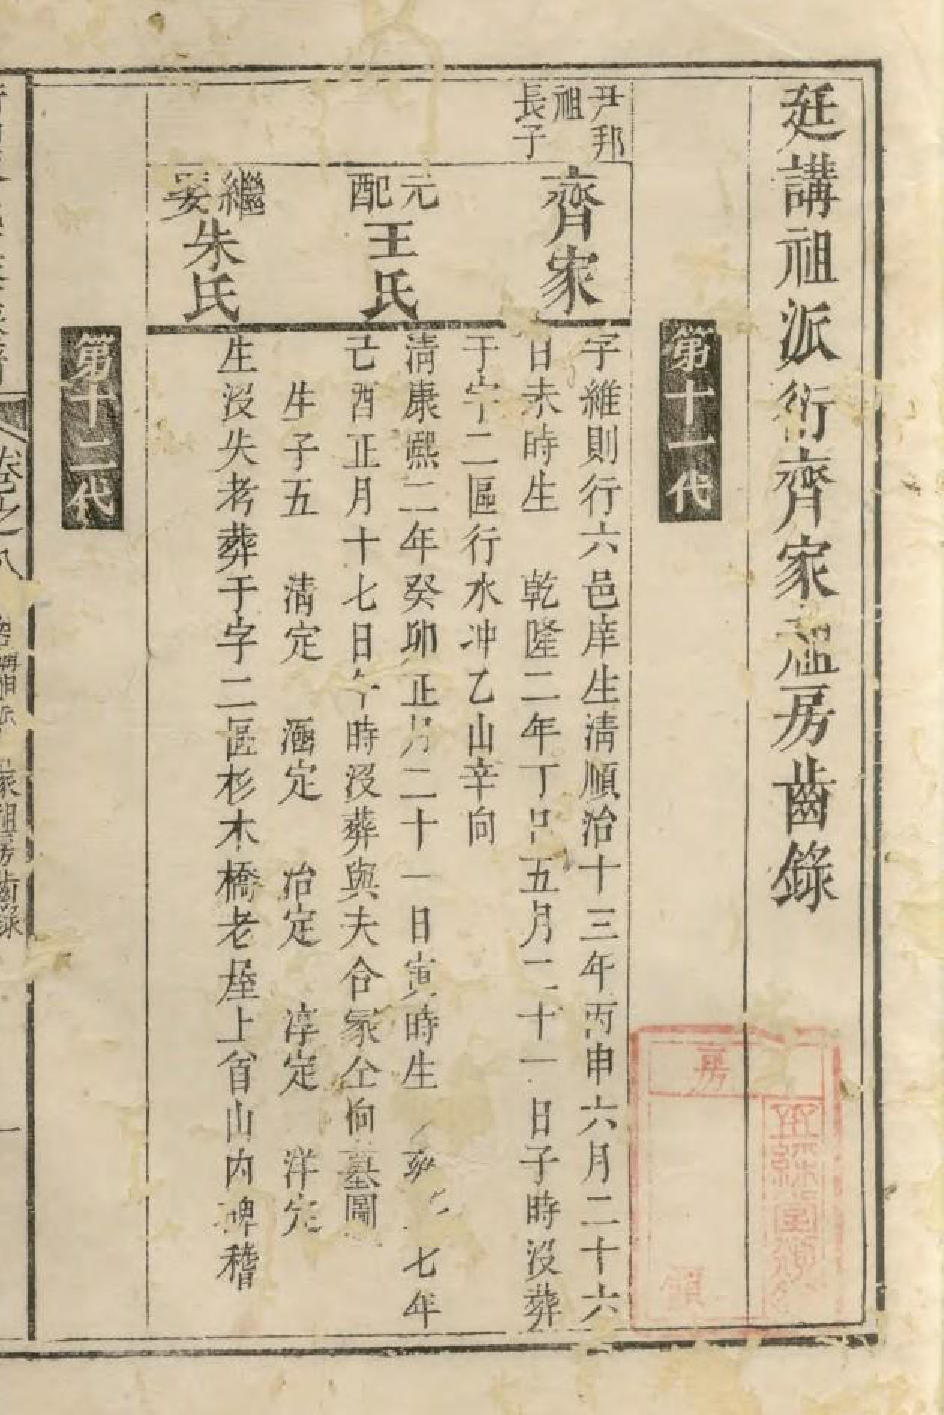 廷講祖派衍齊家祖房齒錄
第十一代
尹邦
祖
長子
齊家
字維則行六邑庠生清順治十三年丙申六月二十六
日未時生 乾隆二年丁巳五月二十一日子時沒葬
于字二區行水冲乙山辛向
元配
王氏
清康熙二年癸卯正月二十一日寅時生 七年
己酉正月十七日午時沒葬與夫合冢仝向墓圖
生子五 清定 涵定 治定 淳定 洋定
繼娶
朱氏
生沒失考葬于字二區杉木橋老屋上首山內碑稽
第十二代
卷之八
家祖房齒錄
一
房
領